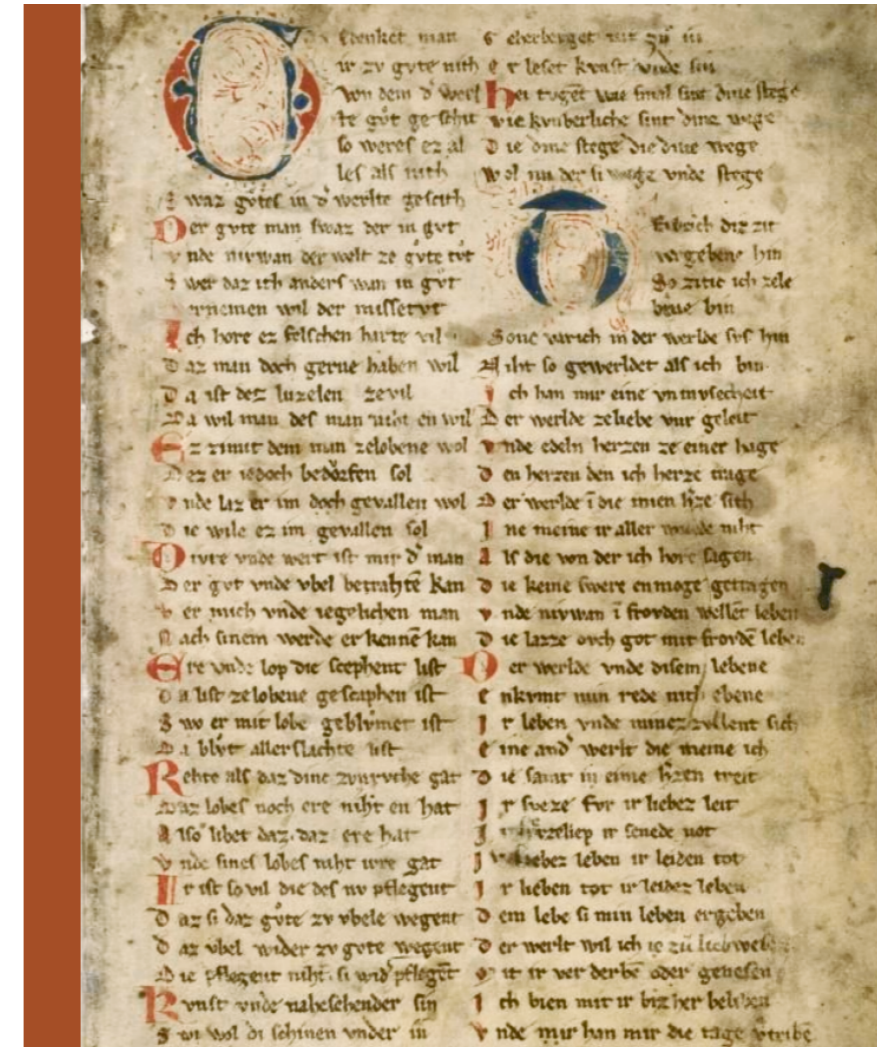 Edenket man
ir zv gvte nith
von dem d' werl
te gvt geschit
so weres ez al
les als nith
swaz gvtes in d' werlte gescith
Der gvte man swaz der in gvt
vnde nirwan der welt ze gvte tvt
swer daz ich anders wan in gvt
vernemen wil der missetvt
Ich hore ez felschen harte vil
Daz man doch gerne haben wil
Da ist dez luzelen zevil
Da wil man des man niht en wil
Ez zimit dem man zelobene wol
Dez er iedoch bedorfen sol
vnde laz er im doch gevallen wol
Die wile ez im gevallen sol
Tivre vnde wert ist mir d' man
Der gvt vnde vbel betrahte kan
Der mich vnde iegelichen man
Nach sinem werde erkennē kan
Ere vnde lop die scephent list
Da list zelobene gescaphen ist
Swo er mit lobe geblvmet ist
Da blvt allerslachte list
Rehte als daz dinc zvnrvche gat
Daz lobes noch ere niht en hat
Also libet daz daz ere hat
vnde sines lobes niht irre gat
Ir ist so vil die des nv pflegent
Daz si daz gvte zv vbele wegent
Daz vbel wider zv gvte wegent
Die pflegent niht si wid' pflegēt
Kvnst vnde nahesehender sin
Swi wol di schinen vnder in
Geherberget nit zv in
er leset kvnst vnde sin
Hei tvgēt wie smal sint dine stege
wie kvmberliche sint dine wege
Die dine stege die dine wege
Wol im der si wege vnde stege
Tribich die zit
vergebene hin
So zitic ich zele
bene bin
Sone varich in der werlde svs hin
Niht so gewerldet als ich bin
Ich han mir eine vnmvsecheit
Der werlde zeliebe vur geleit
vnde edeln herzen ze einer hage
Den herzen den ich herze trage
Der werlde ī die mien h'ze sith
Ine meine ir aller werlde niht
Als die von der ich hore sagen
Die keine swere enmoge getragen
vnde nirwan ī frovden wellēt leben
Die lazze ovch got mit frovdē lebē
Der werlde vnde disem lebene
enkvmt min rede nith ebene
Ir leben vnde minez zvllent sich
eine and' werlt die meine ich
Die samt in eime h'zen treit
Ir sveze svr ir liebez leit
Ir h'zeliep ir senede not
Ir liebez leben ir leiden tot
Ir lieben tot ir leidez leben
Dem lebe si min leben ergeben
Der werlt wil ich
Mit ir verderbē oder genesen
Ich bien mit ir biz her beliben
vnde mir han mir die tage v'tribē
r